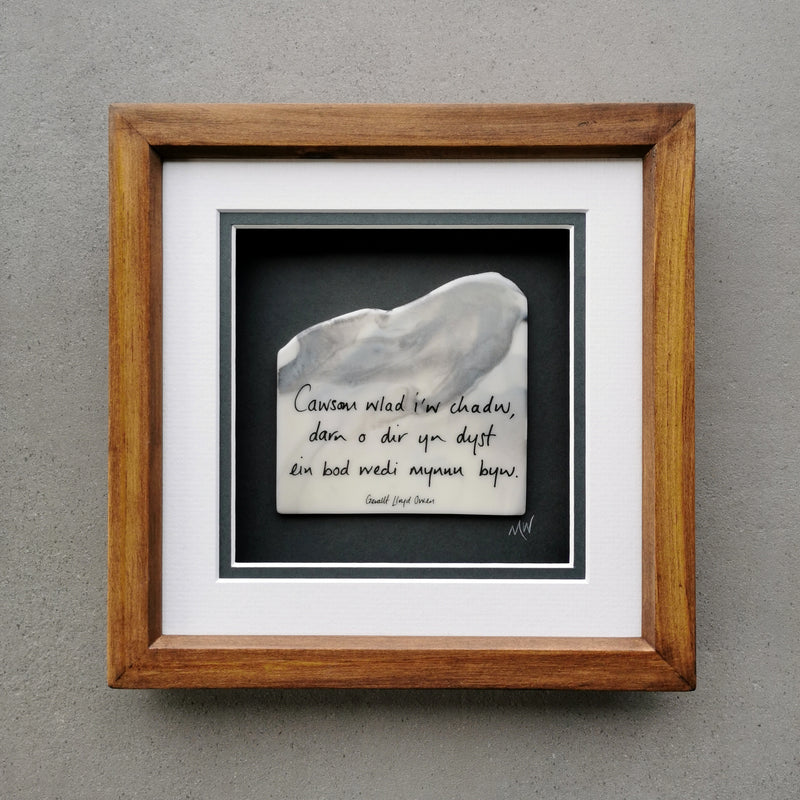 Cawsom wlad i'w chadw,
darn o dir yn dyst
ein bod wedi mynnu byw.
Gerallt Lloyd Owen
MW